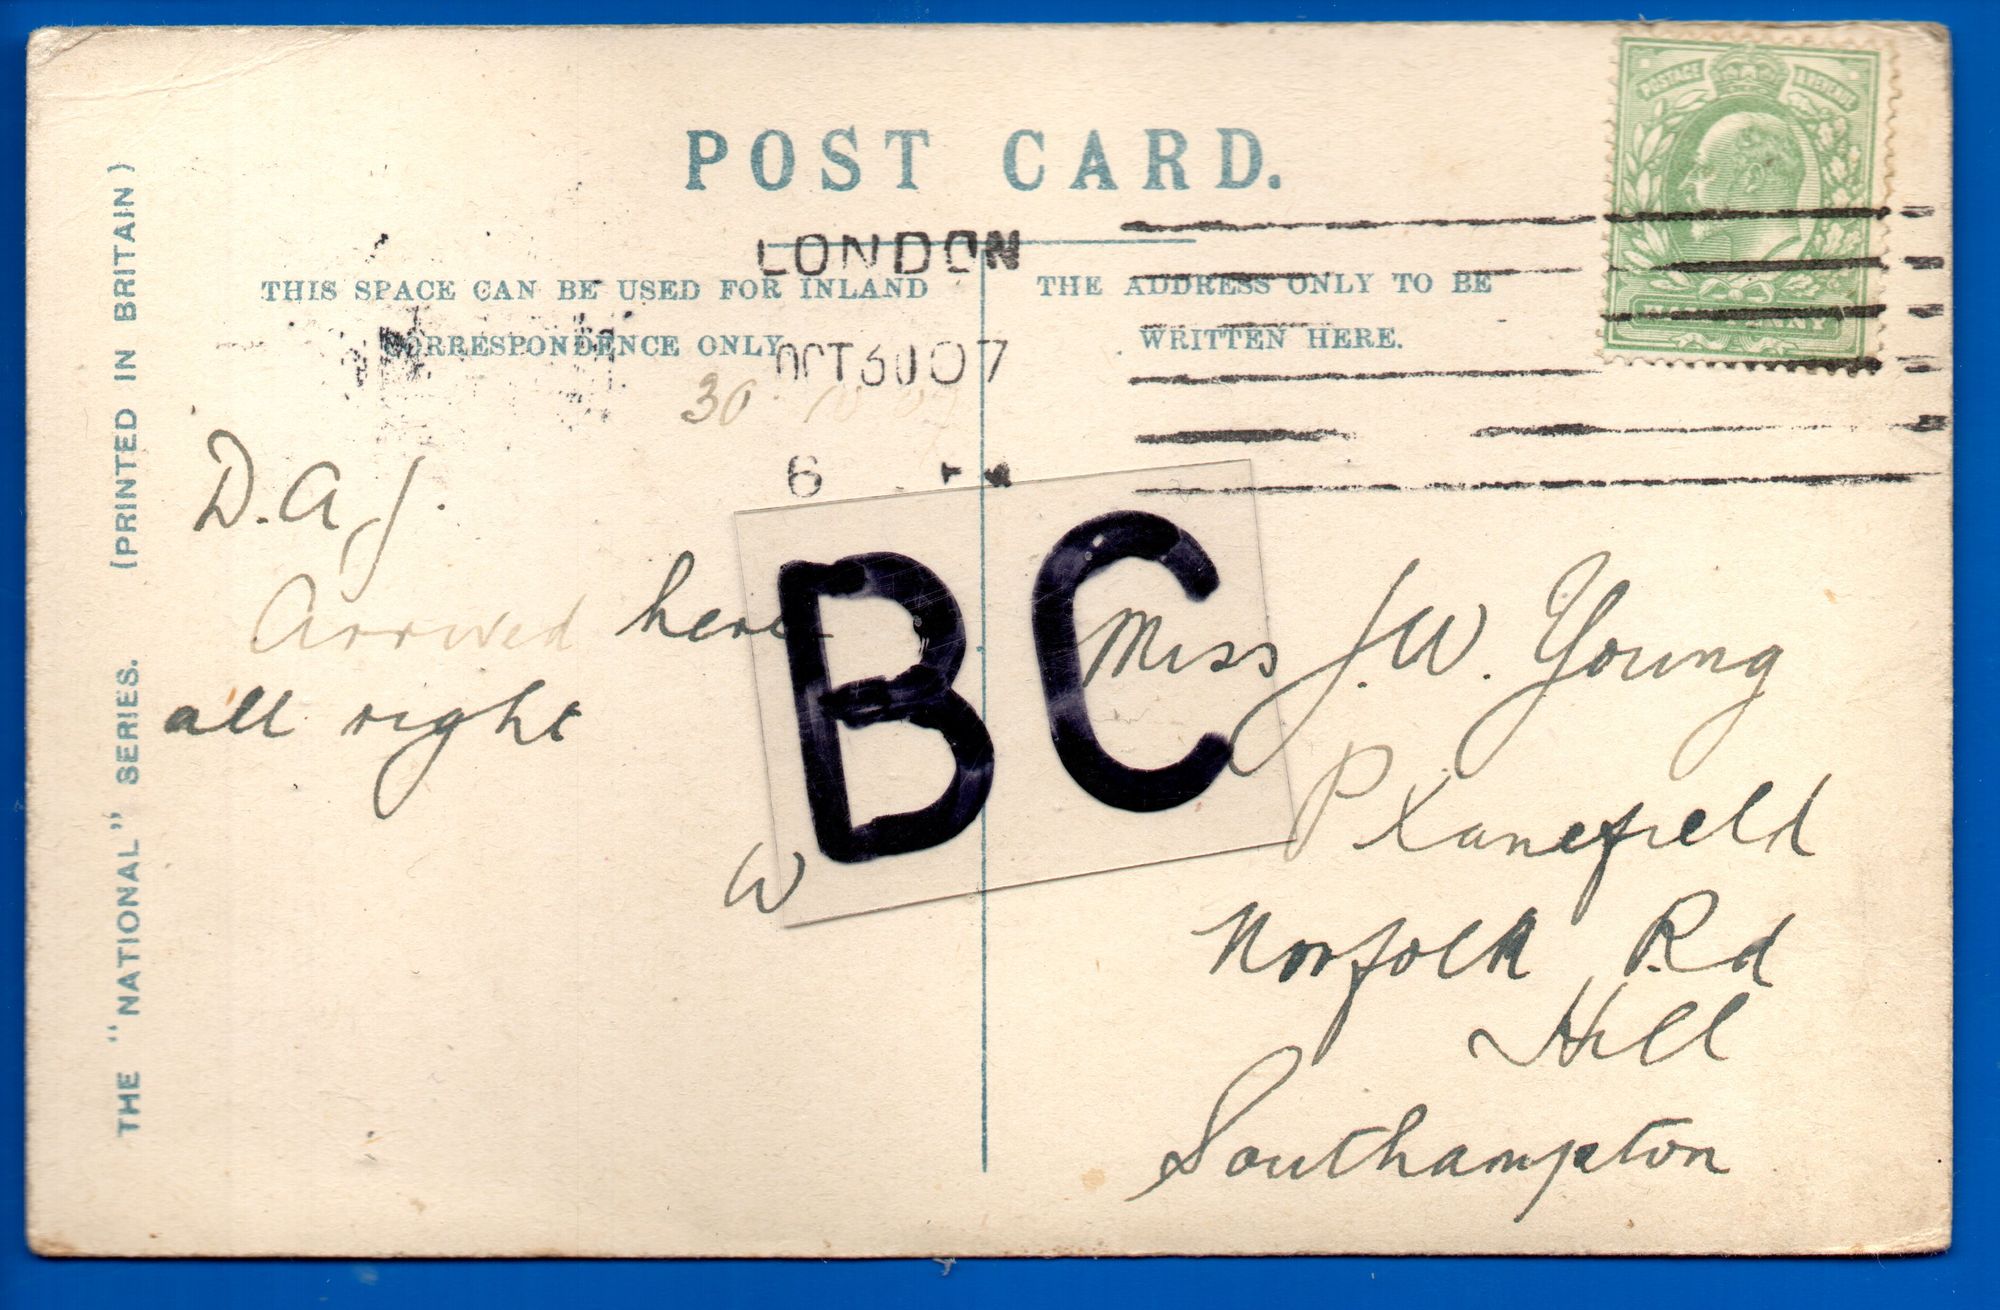 POST CARD.
LONDON
THIS SPACE CAN BE USED FOR INLAND
CORRESPONDENCE ONLY
OCT 30 07
30 10 07
6
THE ADDRESS ONLY TO BE
WRITTEN HERE.
POSTAGE & REVENUE
HALFPENNY
D. A. J.
Arrived here
all right
W
BC
Miss J. W. Young
Norfolk Rd
Hill
Southampton
THE "NATIONAL" SERIES. (PRINTED IN BRITAIN)